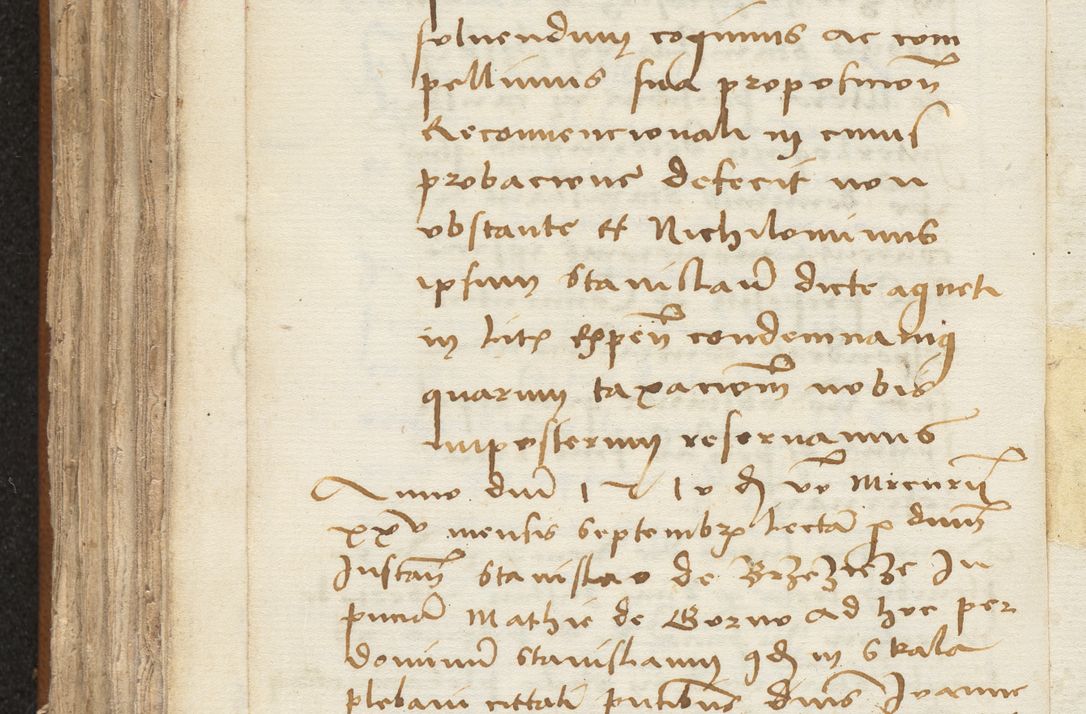 solvendum cogimus ac com
pellimus sua proposicion
Reconvencionali in cuius
probacione defecit non
obstante et Nichilominus
ipsum Stanislaum dicte agneti
in litis expen condemnamus
quarum taxacionem nobis
imposterum reservamus
Anno dni 1510 die vero Mercurii
xxv mensis Septembris lecta p dnum
Instan Stanislao de Brzezieze In
pncia Mathie de Gorno ad hoc per
dominum Stanislaum in Skala
plebani citati pntibus dnis Joanne